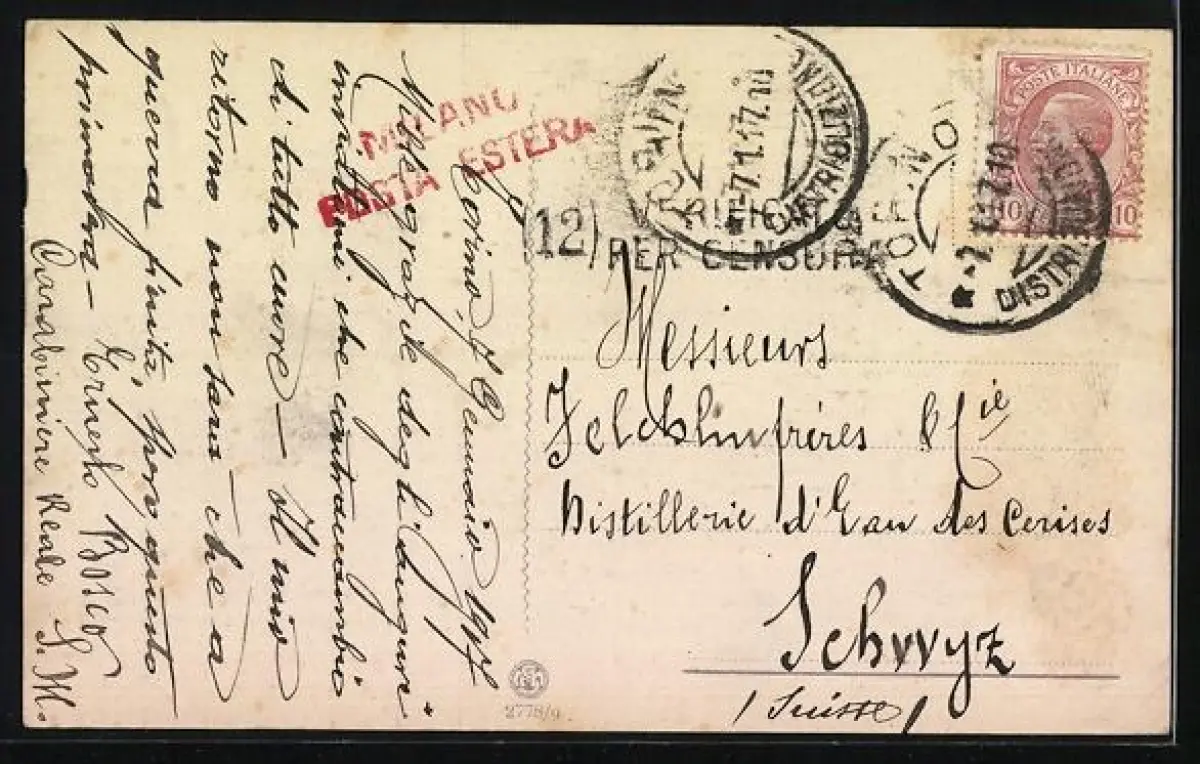 Torino, 7 Gennaio 1917
Mille grazie degli auguri
inviatimi che contraccambio
di tutto cuore — Il mio
ritorno non sarà che a
guerra finita, spero questo
primavera —
Ernesto Bosco
Carabiniere Reale S. M.
MILANO
POSTA ESTERA
TORINO
7.1.17.10
(12) VERIFICATA
PER CENSURA
POSTE ITALIANE
10 10
TORINO
DISTRI
Messieurs
frères & Cie
Distillerie d'Eau des Cerises
Schwyz
(Suisse)
2778/9